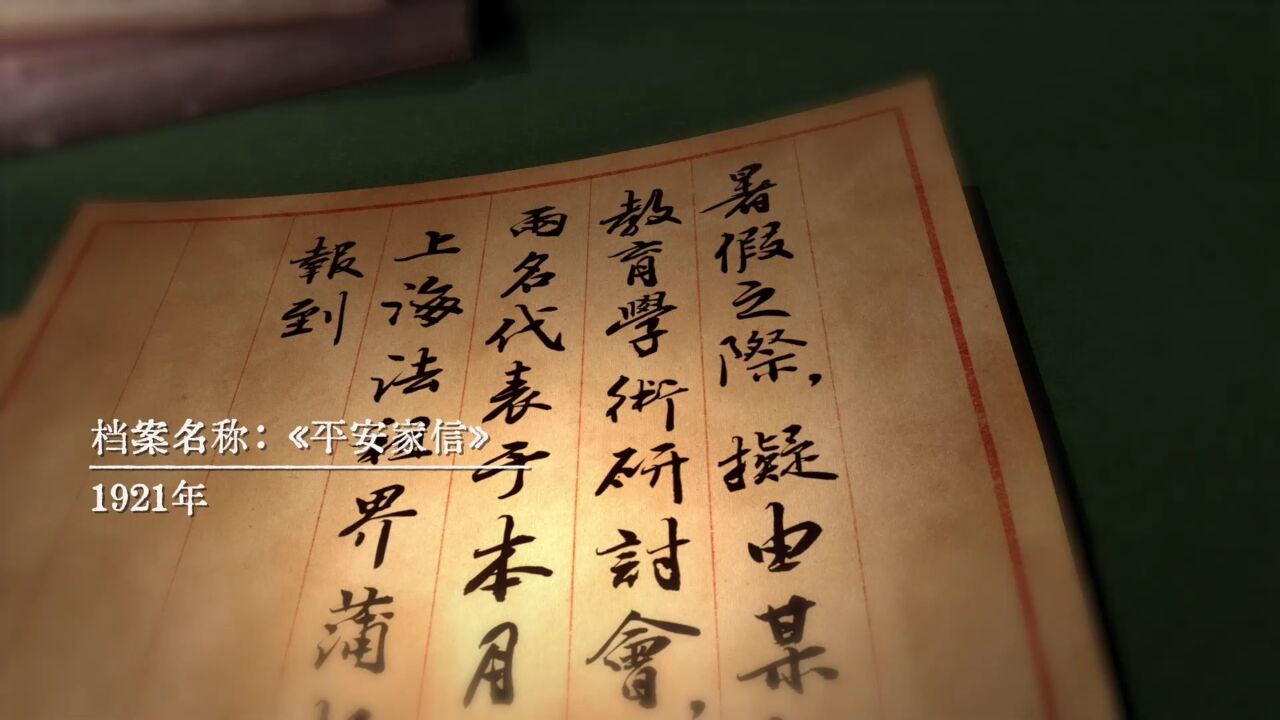 暑假之際，擬由某
教育學術研討會，
兩名代表于本月
上海法租界蒲
報到
档案名称：《平安家信》
1921年